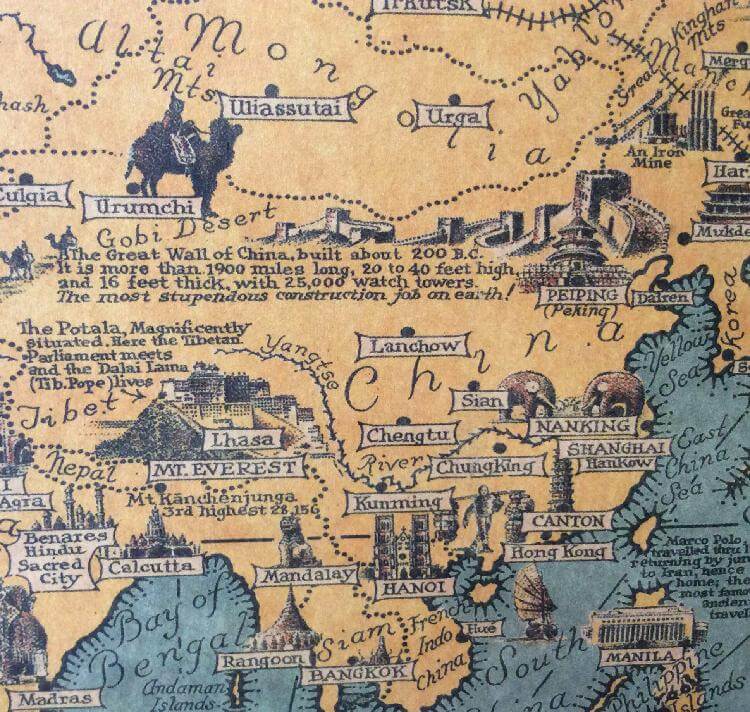 Irkutsk
Altai
Mts
Mongolia
Yablon
Kinghan
Mts
Great
Manc
Merg
hash
Uliassutai
Urga
An Iron
Mine
Grea
Har
Culgia
Urumchi
Gobi Desert
Mukde
The Great Wall of China, built about 200 B.C.
It is more than 1900 miles long, 20 to 40 feet high,
and 16 feet thick, with 25,000 watch towers.
The most stupendous construction job on earth!
PEIPING
(Peking)
Dairen
Korea
The Potala, Magnificently
situated. Here the Tibetan
Parliament meets
and the Dalai Lama
(Tib. Pope) lives
Yangtse
River
Lanchow
China
Yellow
Sea
Tibet
Lhasa
Sian
NANKING
Chengtu
SHANGHAI
Hankow
East
China
Sea
Nepal
MT. EVEREST
Chungking
Agra
Mt Kanchenjunga
3rd highest 28,156
Kunming
CANTON
Benares
Hindu
Sacred
City
Calcutta
Mandalay
HANOI
Hong Kong
Marco Polo
travelled thru
returning by jun
to Iran, hence
home; the
most famo
ancien
travel
Bay of
Bengal
Siam
French
Indo
China
Hué
South
China
Rangoon
BANGKOK
MANILA
Madras
Andaman
Islands
Philippine
Islands